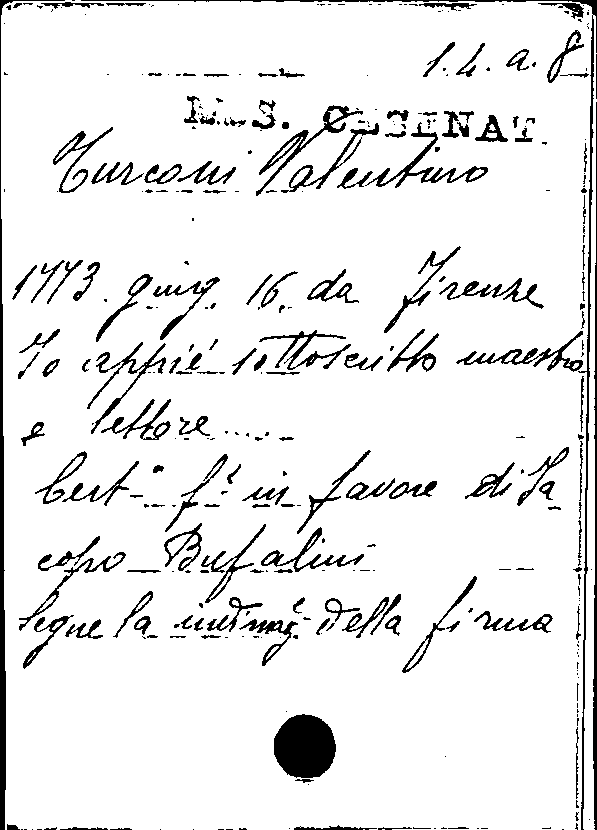 1.4.a.8
MSS. CESENAT.
Turconi Valentino
1773. giug. 16. da Firenze
Io appié sottoscritto maestro
e lettore .....
Cert.° f.° in favore di Ja-
copo Bufalini
Segue la della firma